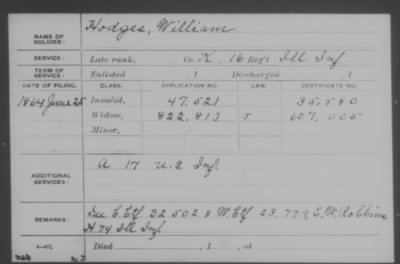 Hodges, William
NAME OF SOLDIER:
SERVICE: Late rank, Co. K, 16 Reg't Ill Inf
TERM OF SERVICE: Enlisted , 1 Discharged , 1
DATE OF FILING. CLASS. APPLICATION NO. LAW. CERTIFICATE NO.
1864 June 25 Invalid, 47.521 35.580
Widow, 822.813 607.005
Minor,
ADDITIONAL SERVICES: A 17 U.S. Inf.
REMARKS: See C. Ctf. 32502 & W. Ctf 23.779 E. W. Robbins
H 74 Ill Inf
Died , 1 , at